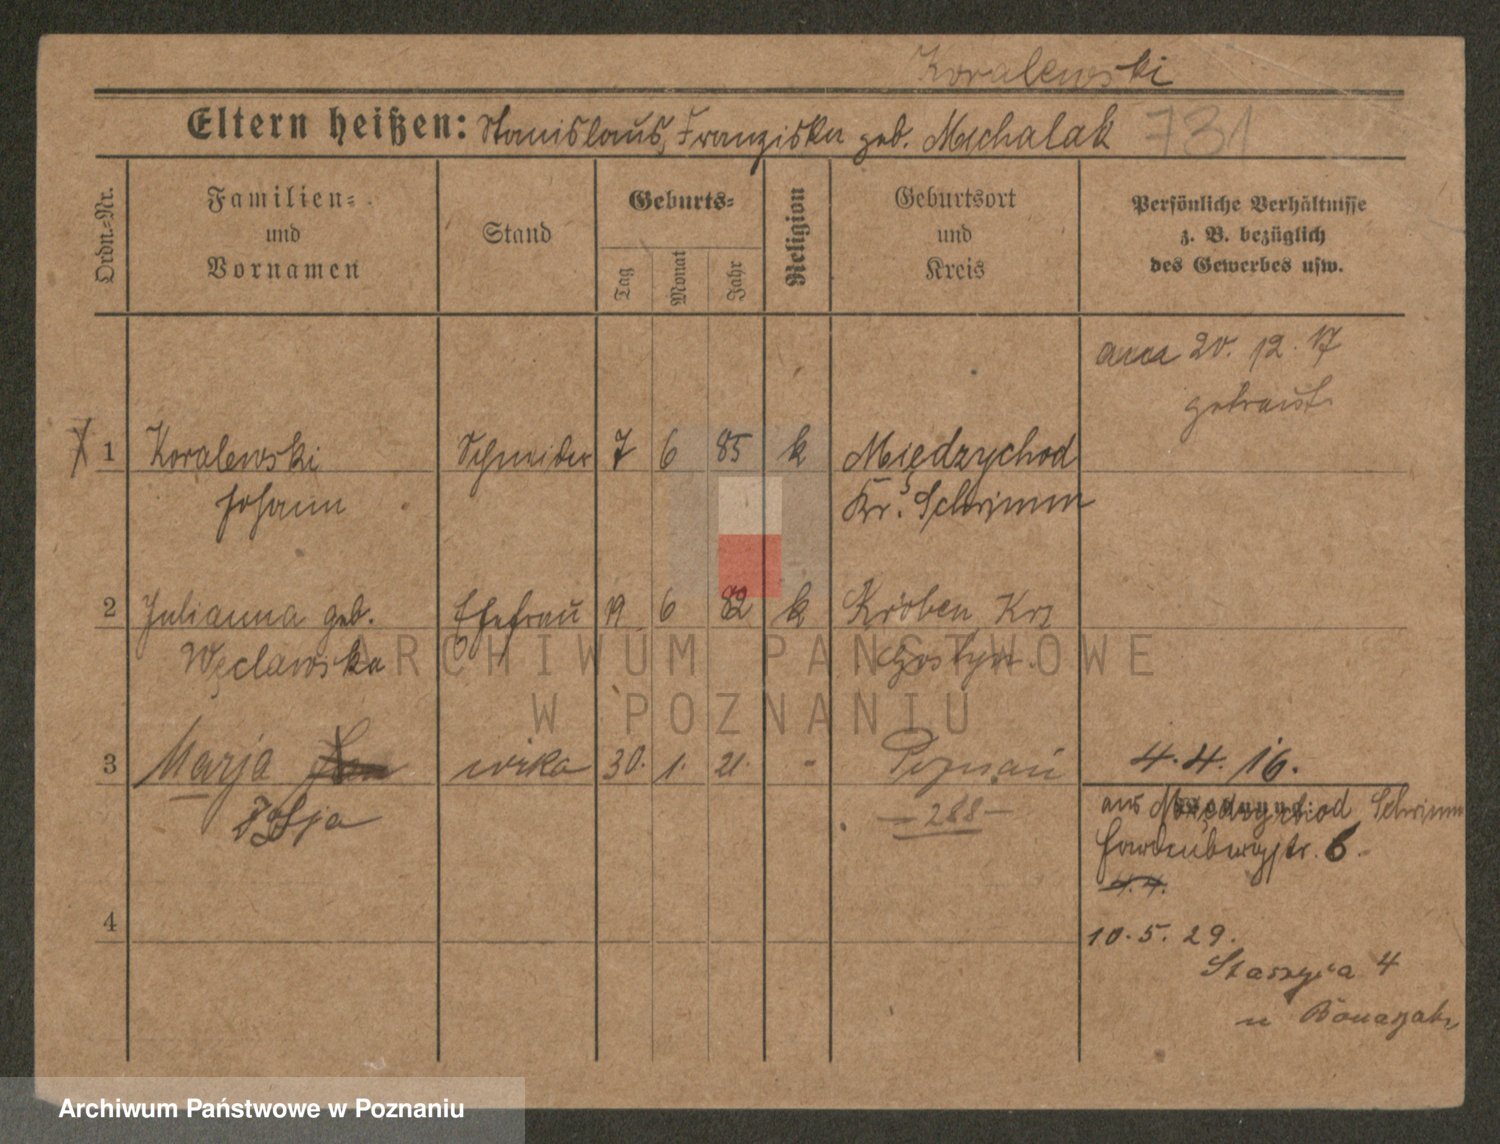 Koralewski
Eltern heißen: Stanislaus, Franziska geb. Michalak 731
Ordn.-Nr.
Familien- und Vornamen
Stand
Geburts-
Tag
Monat
Jahr
Religion
Geburtsort und Kreis
Persönliche Verhältnisse
z. B. bezüglich
des Gewerbes usw.
am 20. 12. 17
getraut
1 Koralewski Schneider 7 6 85 k Międzychod
Johann Kr. Schrimm
2 Julianna geb. Ehefrau 19 6 82 k Kröben Krs
Węclawska Gostyn.
3 Marja córka 30. 1. 21. " Poznań 4.4. 16.
— 288 —
aus Międzychod Schrimm
Wohnung:
Hardenbergstr. 6.
4.4.
4
10. 5. 29.
Staszyca 4
u
ARCHIWUM PAŃSTWOWE
W POZNANIU
Archiwum Państwowe w Poznaniu